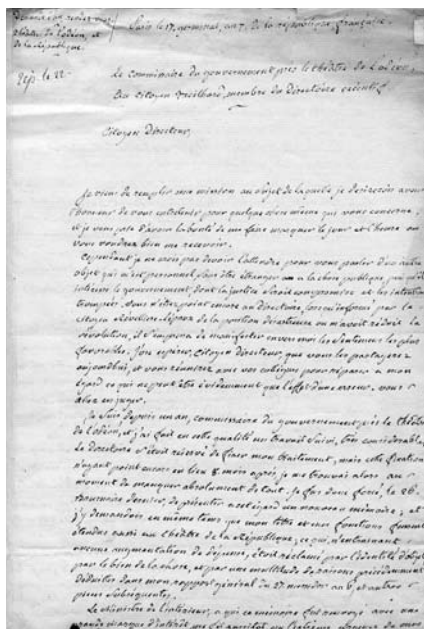 Paris le 17, germinal, an 7, de la république française.
théâtre de l'odéon, et
de la République.
Rép. le 22
Le commissaire du gouvernement près le théâtre de l'odéon,
Au citoyen Treilhard, membre du Directoire exécutif
Citoyen Directeur,
Je viens de remplir une mission au objet de laquelle je désirerois avoir
l'honneur de vous entretenir pour quelque chose même qui vous concerne,
et je vous prie d'avoir la bonté de me faire marquer le jour et l'heure où
vous voudrez bien me recevoir.
Cependant je ne crois pas devoir l'attendre pour vous parler d'un autre
objet qui m'est personnel sans être étranger à la chose publique, puisqu'il
intéresse le gouvernement dont la justice seroit compromise et les intentions
trompées. Vous n'étiez point encore au directoire, lorsqu'informé par le
citoyen Réveillère-Lépeaux de la position désastreuse où m'avoit réduit la
révolution, il s'empressa de manifester envers moi les sentimens les plus
favorables. J'ose espérer, citoyen directeur, que vous les partagerez
aujourd'hui, et vous réunirez avec vos collègues pour réparer à mon
égard ce qui ne peut être évidemment que l'effet d'une erreur. vous
allez en juger.
Je suis depuis un an, commissaire du gouvernement près le théâtre
de l'odéon, et j'ai fait en cette qualité un travail suivi, très considérable.
Le directoire s'étoit réservé de fixer mon traitement, mais cette fixation
n'ayant point encore eu lieu 8 mois après, je me trouvois alors au
moment de manquer absolument de tout. Je fus donc forcé, le 26
brumaire dernier, de présenter à cet égard un nouveau mémoire; et
j'y demandois en même tems que mon titre et mes fonctions fussent
étendus aussi au théâtre de la République, ce qui, n'entrainant
aucune augmentation de dépense, étoit réclamé par l'identité d'objet,
par le bien de la chose, et par une multitude de raisons précédemment
déduites dans mon rapport général du 27 messidor an 6, et autres
pièces subséquentes.
Le Ministre de l'intérieur, à qui ce mémoire fut renvoyé avec une
grande marque d'intérêt